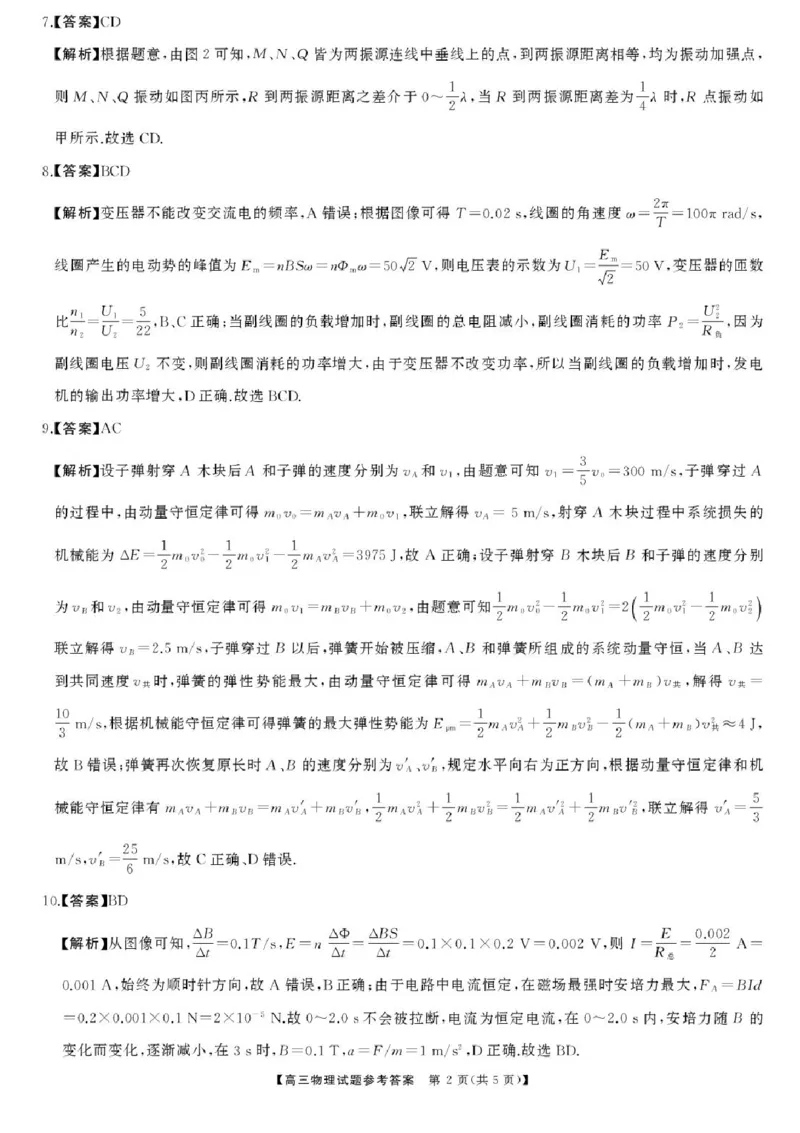 7.【答案】CD
【解析】根据题意,由图 2 可知,M、N、Q 皆为两振源连线中垂线上的点,到两振源距离相等,均为振动加强点,
则 M、N、Q 振动如图丙所示,R 到两振源距离之差介于 0～1/2 λ,当 R 到两振源距离差为 1/4 λ 时,R 点振动如
甲所示.故选 CD.
8.【答案】BCD
【解析】变压器不能改变交流电的频率,A 错误;根据图像可得 T=0.02 s,线圈的角速度 ω=2π/T=100π rad/s,
线圈产生的电动势的峰值为 Eₘ=nBSω=nΦₘω=50√2 V,则电压表的示数为 U₁=Eₘ/√2=50 V,变压器的匝数
比 n₁/n₂=U₁/U₂=5/22,B、C 正确;当副线圈的负载增加时,副线圈的总电阻减小,副线圈消耗的功率 P₂=U₂²/R负,因为
副线圈电压 U₂ 不变,则副线圈消耗的功率增大,由于变压器不改变功率,所以当副线圈的负载增加时,发电
机的输出功率增大,D 正确.故选 BCD.
9.【答案】AC
【解析】设子弹射穿 A 木块后 A 和子弹的速度分别为 v_A 和 v₁,由题意可知 v₁=3/5 v₀=300 m/s,子弹穿过 A
的过程中,由动量守恒定律可得 m₀v₀=m_Av_A+m₀v₁,联立解得 v_A=5 m/s,射穿 A 木块过程中系统损失的
机械能为 ΔE=1/2 m₀v₀²-1/2 m₀v₁²-1/2 m_Av_A²=3975 J,故 A 正确;设子弹射穿 B 木块后 B 和子弹的速度分别
为 v_B 和 v₂,由动量守恒定律可得 m₀v₁=m_Bv_B+m₀v₂,由题意可知 1/2 m₀v₀²-1/2 m₀v₁²=2(1/2 m₀v₁²-1/2 m₀v₂²)
联立解得 v_B=2.5 m/s,子弹穿过 B 以后,弹簧开始被压缩,A、B 和弹簧所组成的系统动量守恒,当 A、B 达
到共同速度 v共 时,弹簧的弹性势能最大,由动量守恒定律可得 m_Av_A+m_Bv_B=(m_A+m_B)v共,解得 v共=
10/3 m/s,根据机械能守恒定律可得弹簧的最大弹性势能为 E_pm=1/2 m_Av_A²+1/2 m_Bv_B²-1/2(m_A+m_B)v共²≈4 J,
故 B 错误;弹簧再次恢复原长时 A、B 的速度分别为 v′_A、v′_B,规定水平向右为正方向,根据动量守恒定律和机
械能守恒定律有 m_Av_A+m_Bv_B=m_Av′_A+m_Bv′_B,1/2 m_Av_A²+1/2 m_Bv_B²=1/2 m_Av′_A²+1/2 m_Bv′_B²,联立解得 v′_A=5/3
m/s,v′_B=25/6 m/s,故 C 正确、D 错误.
10.【答案】BD
【解析】从图像可知,ΔB/Δt=0.1T/s,E=n ΔΦ/Δt=ΔBS/Δt=0.1×0.1×0.2 V=0.002 V,则 I=E/R总=0.002/2 A=
0.001 A,始终为顺时针方向,故 A 错误,B 正确;由于电路中电流恒定,在磁场最强时安培力最大,F_A=BId
=0.2×0.001×0.1 N=2×10⁻⁵ N.故 0～2.0 s 不会被拉断,电流为恒定电流,在 0～2.0 s 内,安培力随 B 的
变化而变化,逐渐减小,在 3 s 时,B=0.1 T,a=F/m=1 m/s²,D 正确.故选 BD.
【高三物理试题参考答案 第 2 页(共 5 页)】